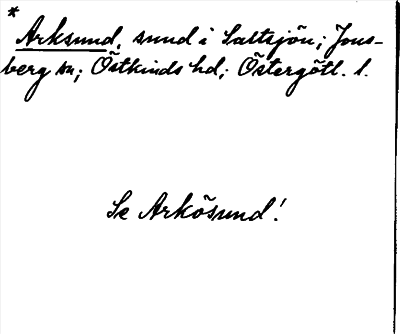 *
Arksund, sund i Saltsjön; Jons-
berg sn; Östkinds hd; Östergötl. l.
Se Arkösund!